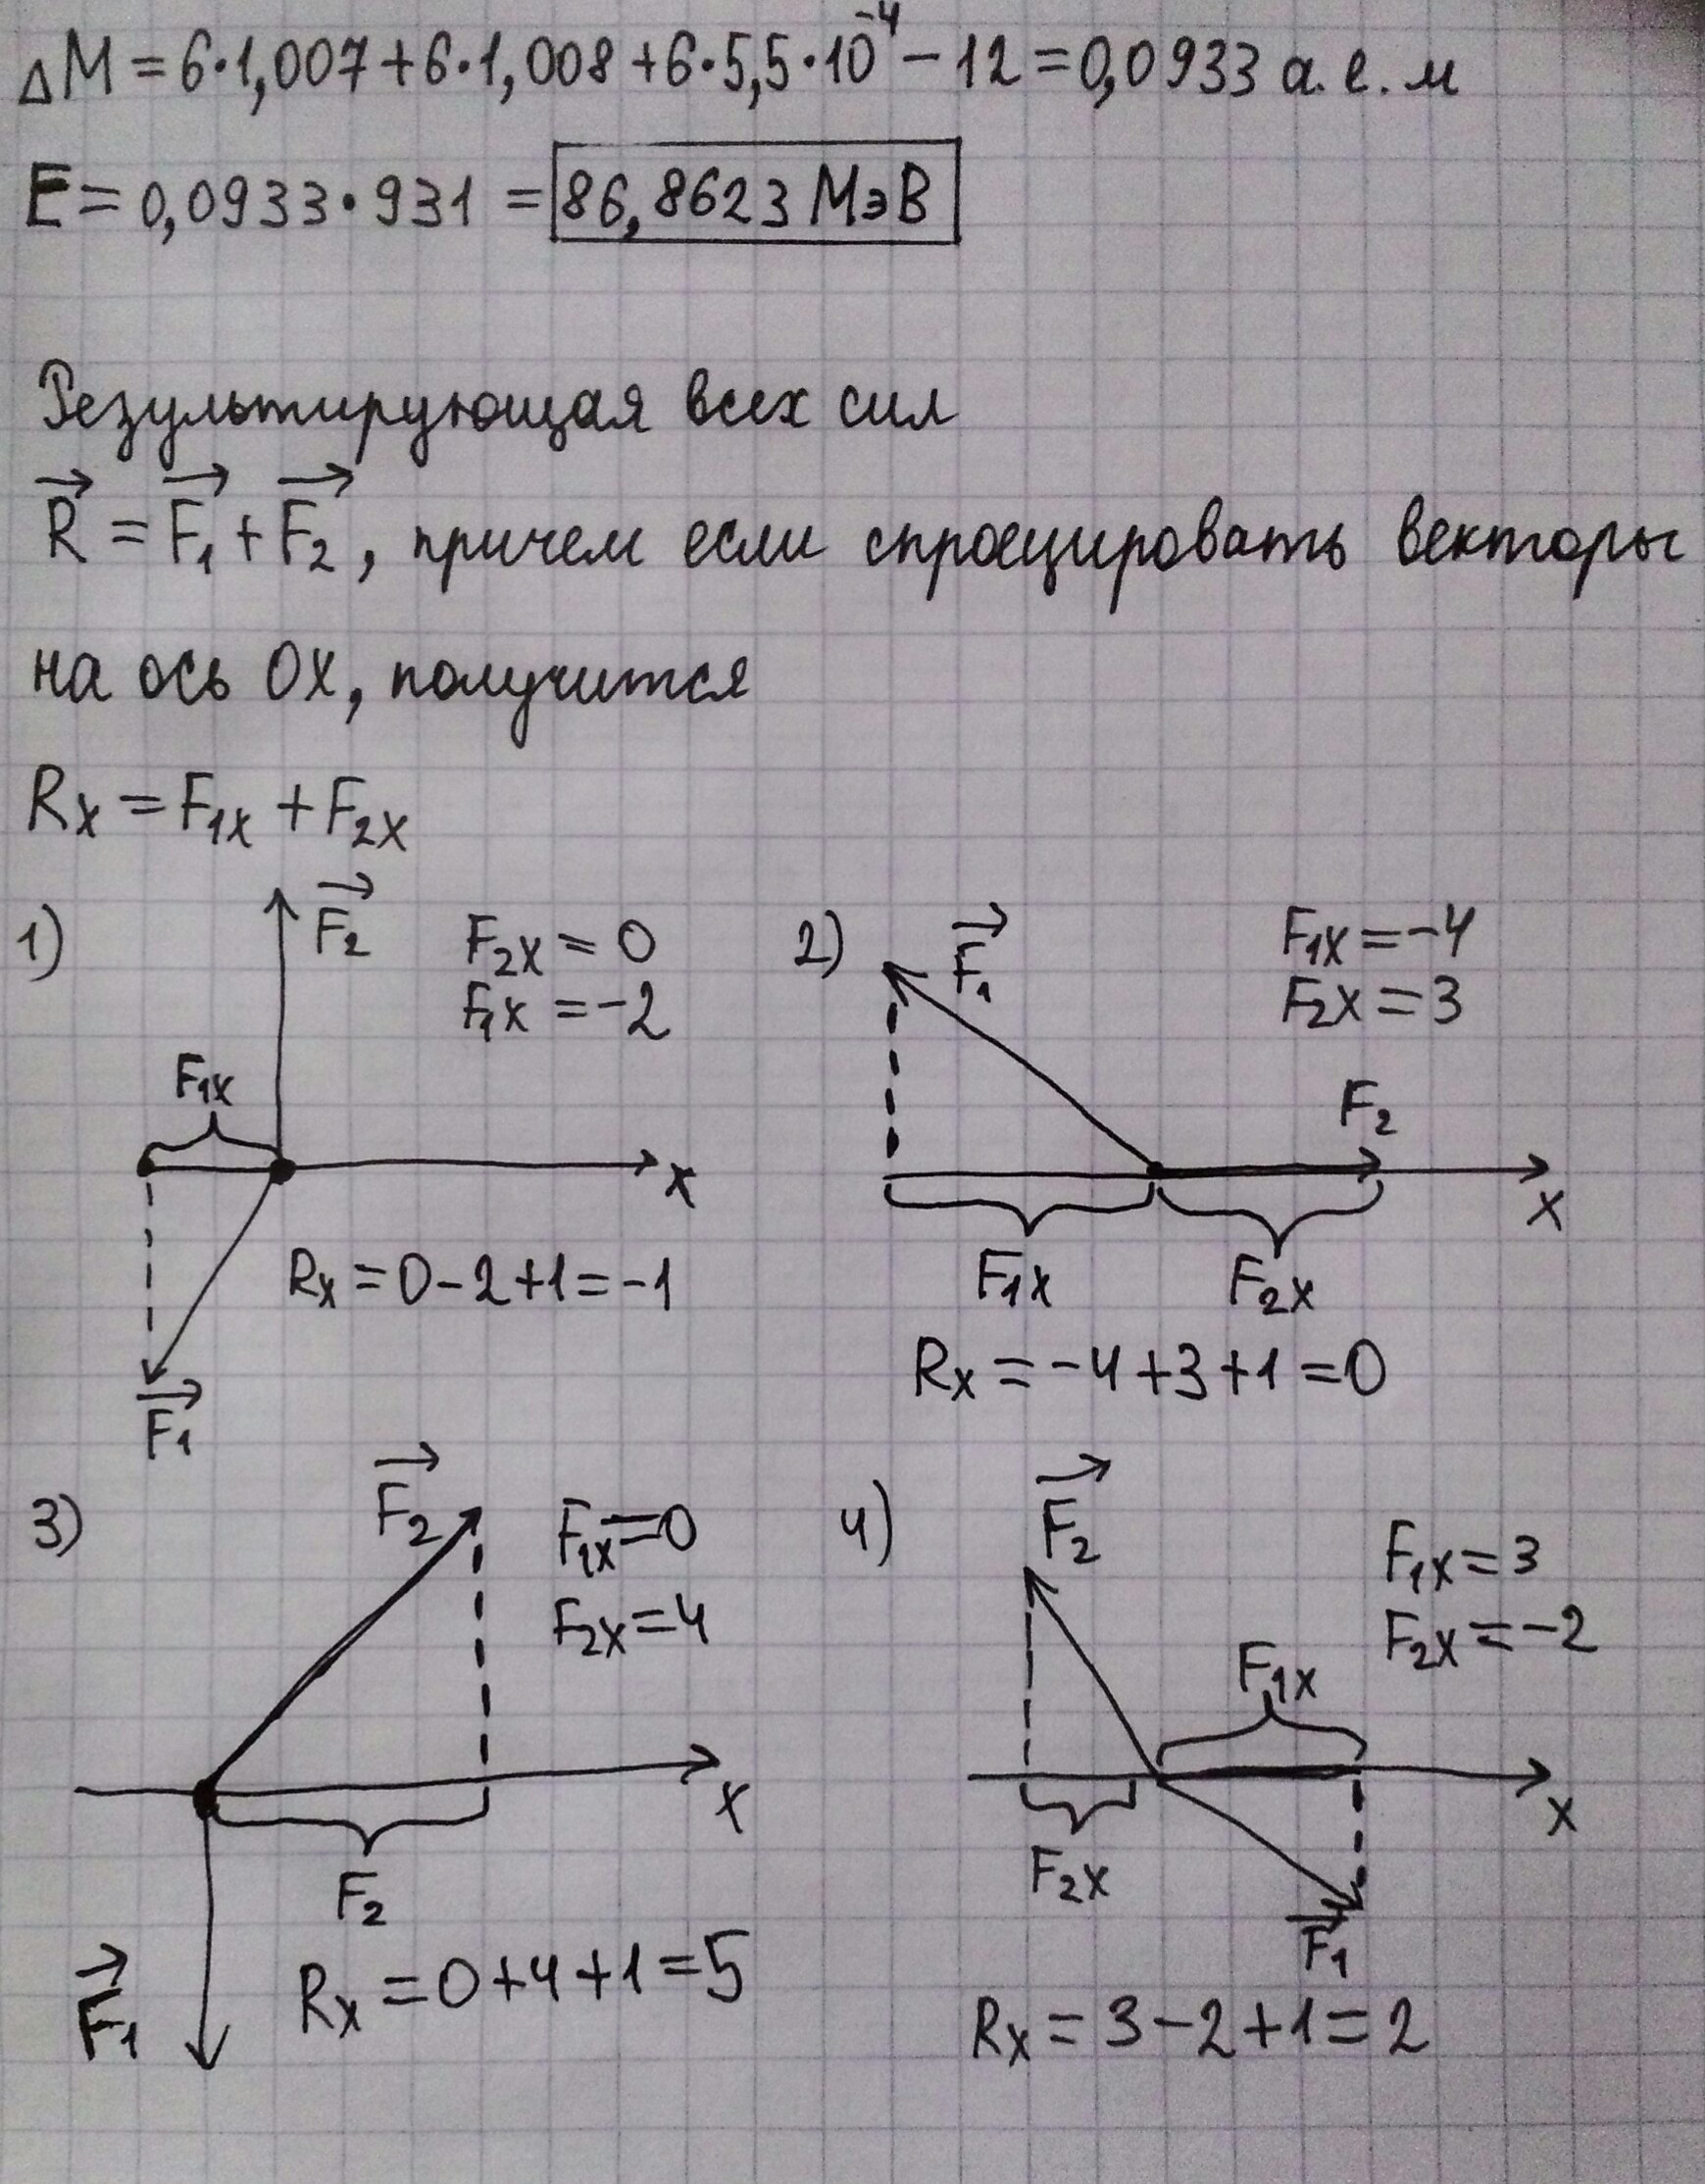 ΔM = 6·1,007 + 6·1,008 + 6·5,5·10⁻⁴ − 12 = 0,0933 а.е.м
E = 0,0933·931 = 86,8623 МэВ
Результирующая всех сил
R⃗ = F⃗₁ + F⃗₂, причем если спроецировать векторы
на ось OX, получится
Rx = F₁x + F₂x
1)
F⃗₂
F₂x = 0
F₁x = −2
F₁x
x
Rx = 0 − 2 + 1 = −1
F⃗₁
2)
F⃗₁
F₁x = −4
F₂x = 3
F₂
x
F₁x
F₂x
Rx = −4 + 3 + 1 = 0
3)
F⃗₂
F₁x = 0
F₂x = 4
x
F₂
F⃗₁
Rx = 0 + 4 + 1 = 5
4)
F⃗₂
F₁x = 3
F₂x = −2
F₁x
x
F₂x
F⃗₁
Rx = 3 − 2 + 1 = 2